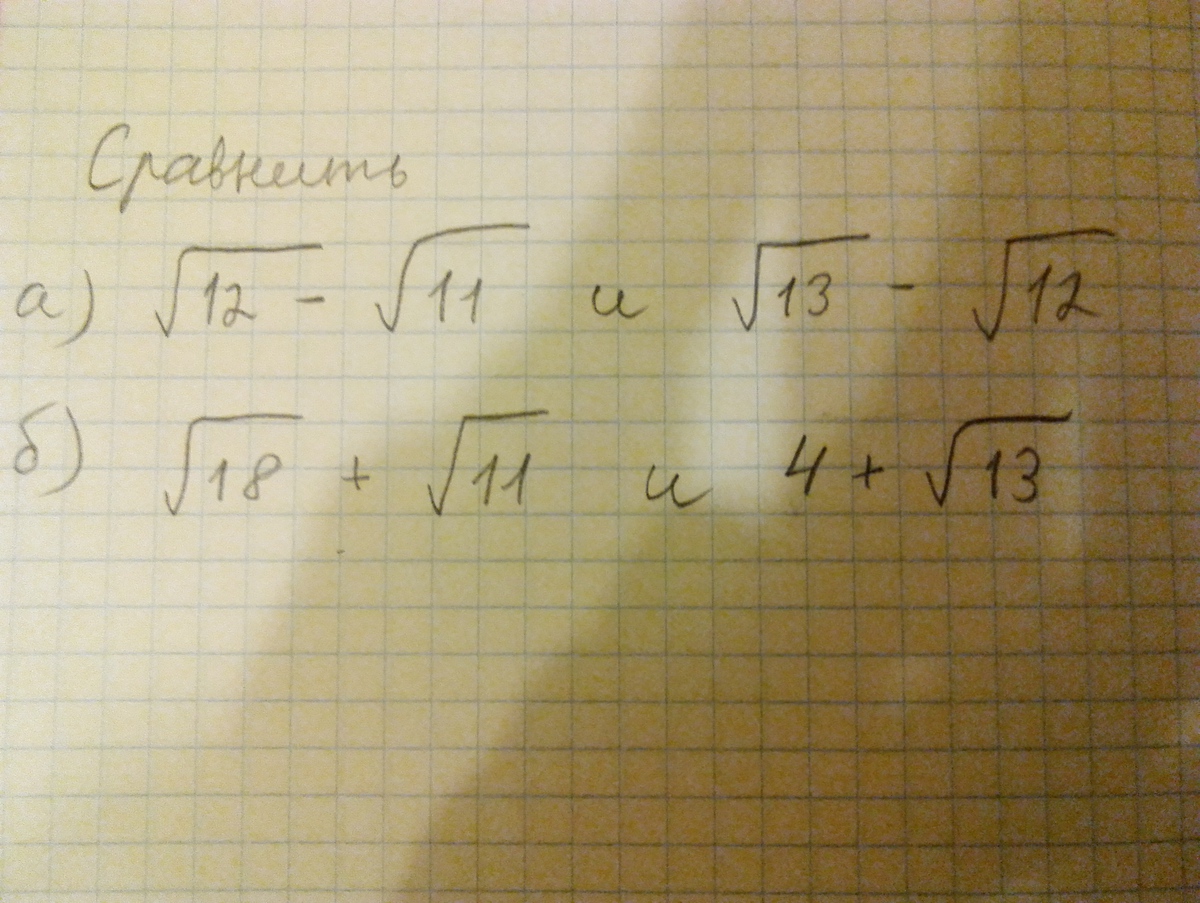 Сравнить
а) √12 - √11 и √13 - √12
б) √18 + √11 и 4 + √13